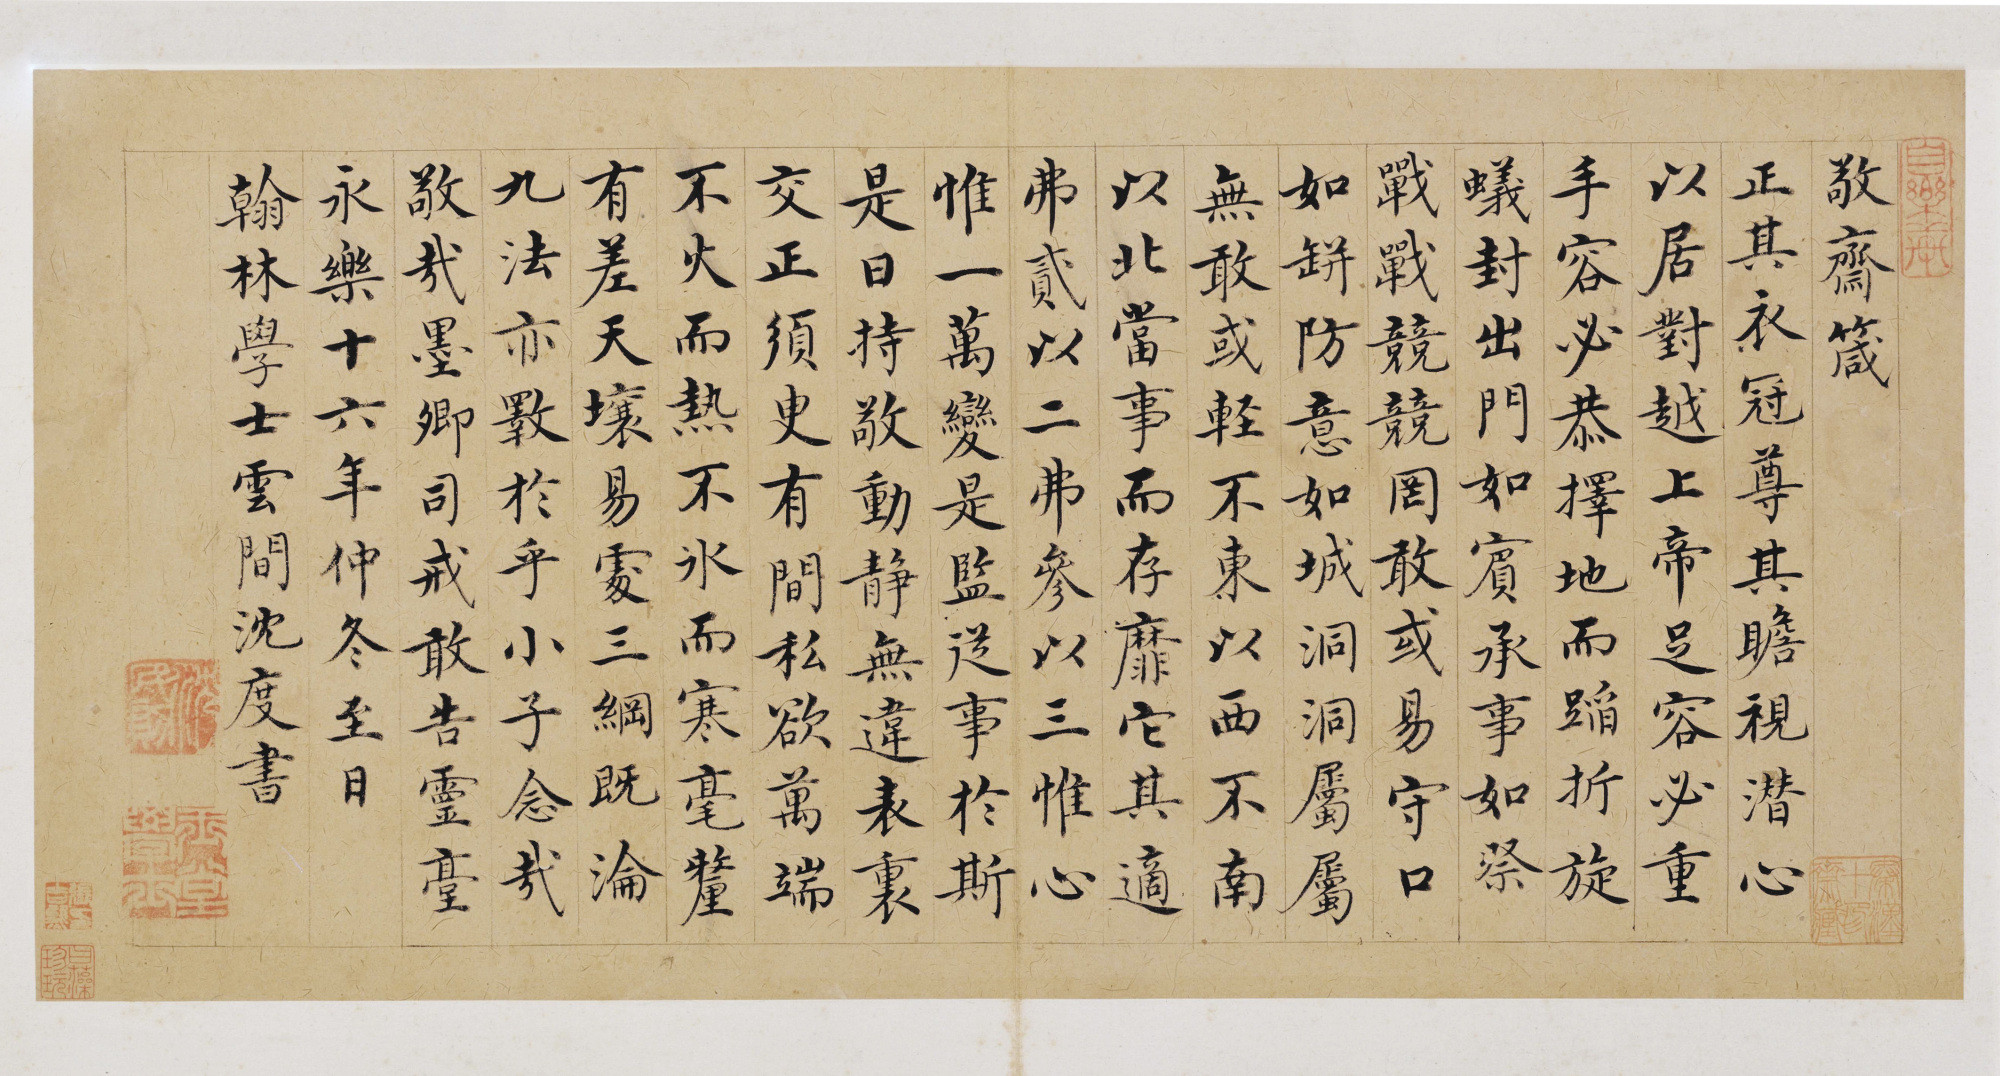 敬齋箴
正其衣冠尊其瞻視潜心
以居對越上帝足容必重
手容必恭擇地而蹈折旋
蟻封出門如賓承事如祭
戰戰兢兢罔敢或易守口
如缾防意如城洞洞屬屬
無敢或軽不東以西不南
以北當事而存靡它其適
弗貳以二弗參以三惟心
惟一萬變是監從事於斯
是曰持敬動静無違表裏
交正須臾有間私欲萬端
不火而熱不氷而寒毫釐
有差天壤易處三綱既淪
九法亦斁於乎小子念哉
敬哉墨卿司戒敢告靈臺
永樂十六年仲冬至日
翰林學士雲間沈度書